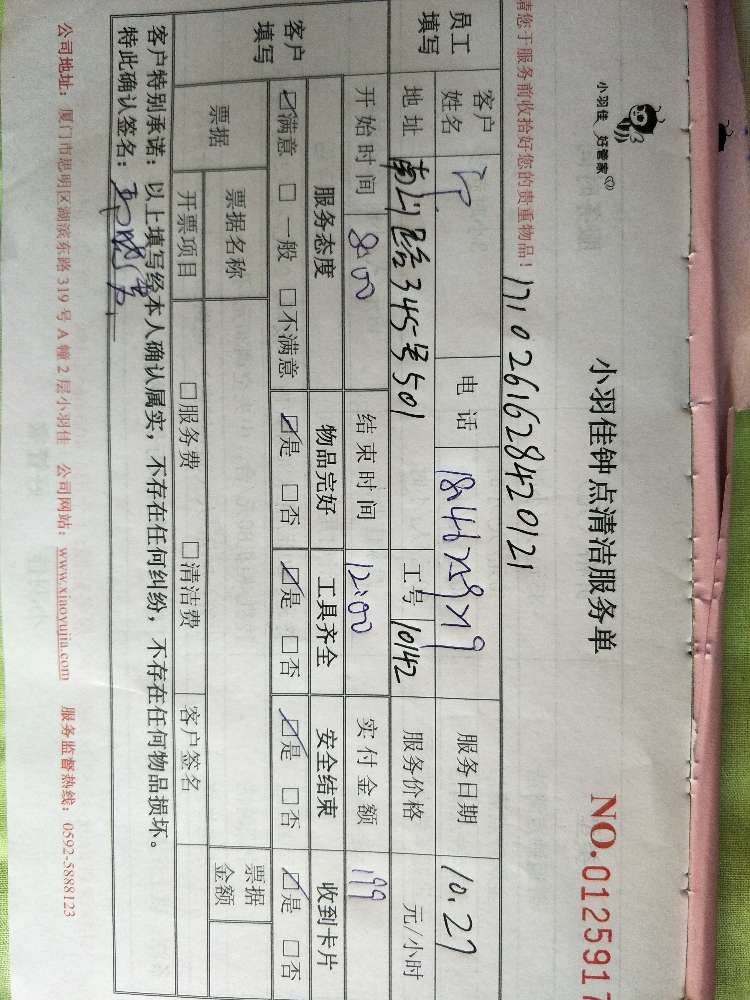 小羽佳 好管家
小羽佳钟点清洁服务单
NO.0125917
请您于服务前收拾好您的贵重物品！
1710261628420121
员工填写 客户姓名 电话 服务日期 10.27
地址 南山路345号501 工号 10142 服务价格 元/小时
客户填写 开始时间 8:00 结束时间 12:00 实付金额 199
服务态度 物品完好 工具齐全 安全结束 收到卡片
☑满意 □一般 □不满意 ☑是 □否 ☑是 □否 ☑是 □否 ☑是 □否
票据 票据名称 票据金额
开票项目 □服务费 □清洁费 客户签名
客户特别承诺：以上填写经本人确认属实，不存在任何纠纷，不存在任何物品损坏。
特此确认签名：
公司地址：厦门市思明区湖滨东路319号A幢2层小羽佳 公司网站：www.xiaoyujia.com 服务监督热线：0592-5888123